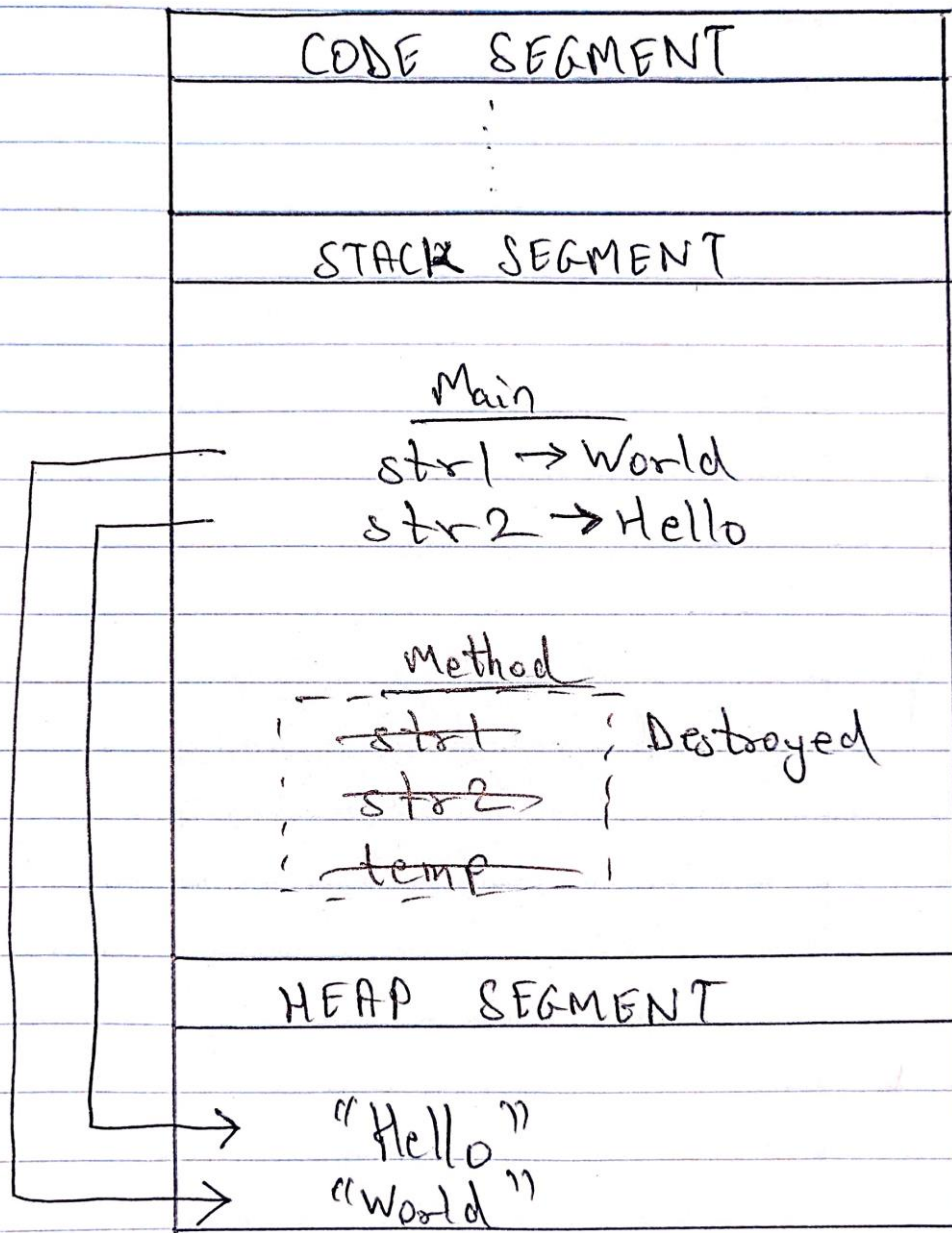 CODE SEGMENT
STACK SEGMENT
Main
str1 → World
str2 → Hello
Method
str1
Destroyed
str2
temp
HEAP SEGMENT
"Hello"
"World"